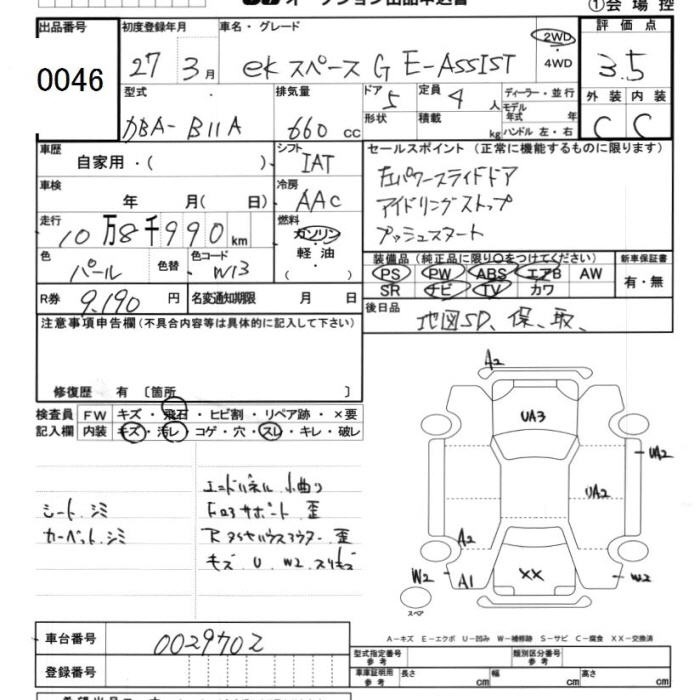 オークション出品申込書
①会場控
出品番号
0046
初度登録年月
27 3月
車名・グレード
eKスペース G E-ASSIST
2WD
・
4WD
評価点
3.5
外装 内装
C C
型式
DBA-B11A
排気量
660 cc
ドア 5
形状
定員 4 人
積載 kg
ディーラー・並行
モデル年式 年式
ハンドル 左・右
車歴
自家用・( )
シフト
IAT
セールスポイント (正常に機能するものに限ります)
左パワースライドドア
アイドリングストップ
プッシュスタート
車検
年 月( 日)
冷房
AAC
走行
10万8千990km
燃料
ガソリン
・
軽油
( )
色
パール
色替
色コード
W13
装備品 (純正品に限り○をつけてください)
PS PW ABS エアB AW
SR ナビ TV カワ
新車保証書
有・無
R券 9,190 円
名変通知期限 月 日
後日品
地図SD、保、取、
注意事項申告欄(不具合内容等は具体的に記入して下さい)
修復歴 有 〔箇所 〕
検査員記入欄
FW キズ・飛石・ヒビ割・リペア跡・×要
内装 キズ・汚レ・コゲ・穴・スレ・キレ・破レ
シート、シミ
カーペット、シミ
エンドパネル 小曲り
Fロアサポート 歪
キズ U W2 スリキズ
A2
UA3
UA2
UA2
A2
W2
A1
XX
W2
スペア
A-キズ E-エクボ U-凹み W-補修跡 S-サビ C-腐食 XX-交換済
車台番号
0029702
登録番号
型式指定番号 参考
類別区分番号 参考
車庫証明用 参考
長さ cm
幅 cm
高さ cm